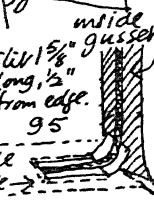 inside
gusset
slit 1 5/8"
long, 1/2"
from edge.
95